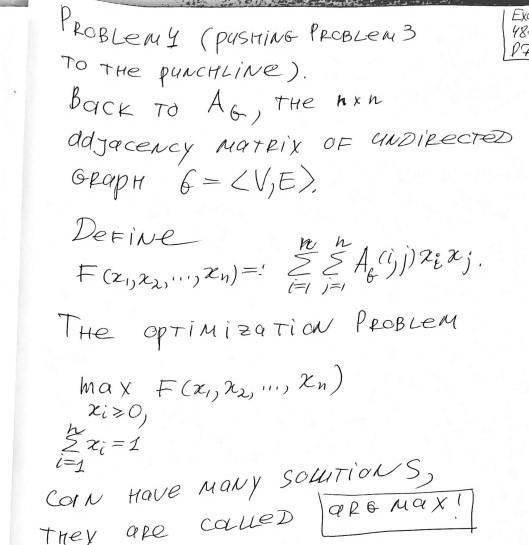 PROBLEM 4 (PUSHING PROBLEM 3
TO THE PUNCHLINE).
BACK TO A_G, THE n×n
ADJACENCY MATRIX OF UNDIRECTED
GRAPH G = <V,E>.
DEFINE
F(x₁,x₂,...,xₙ)=: Σ_{i=1}^{n} Σ_{j=1}^{n} A_G(i,j) xᵢ xⱼ.
THE OPTIMIZATION PROBLEM
max F(x₁, x₂, ..., xₙ)
xᵢ ≥ 0,
Σ_{i=1}^{n} xᵢ = 1
CAN HAVE MANY SOLUTIONS,
THEY ARE CALLED ARG MAX!